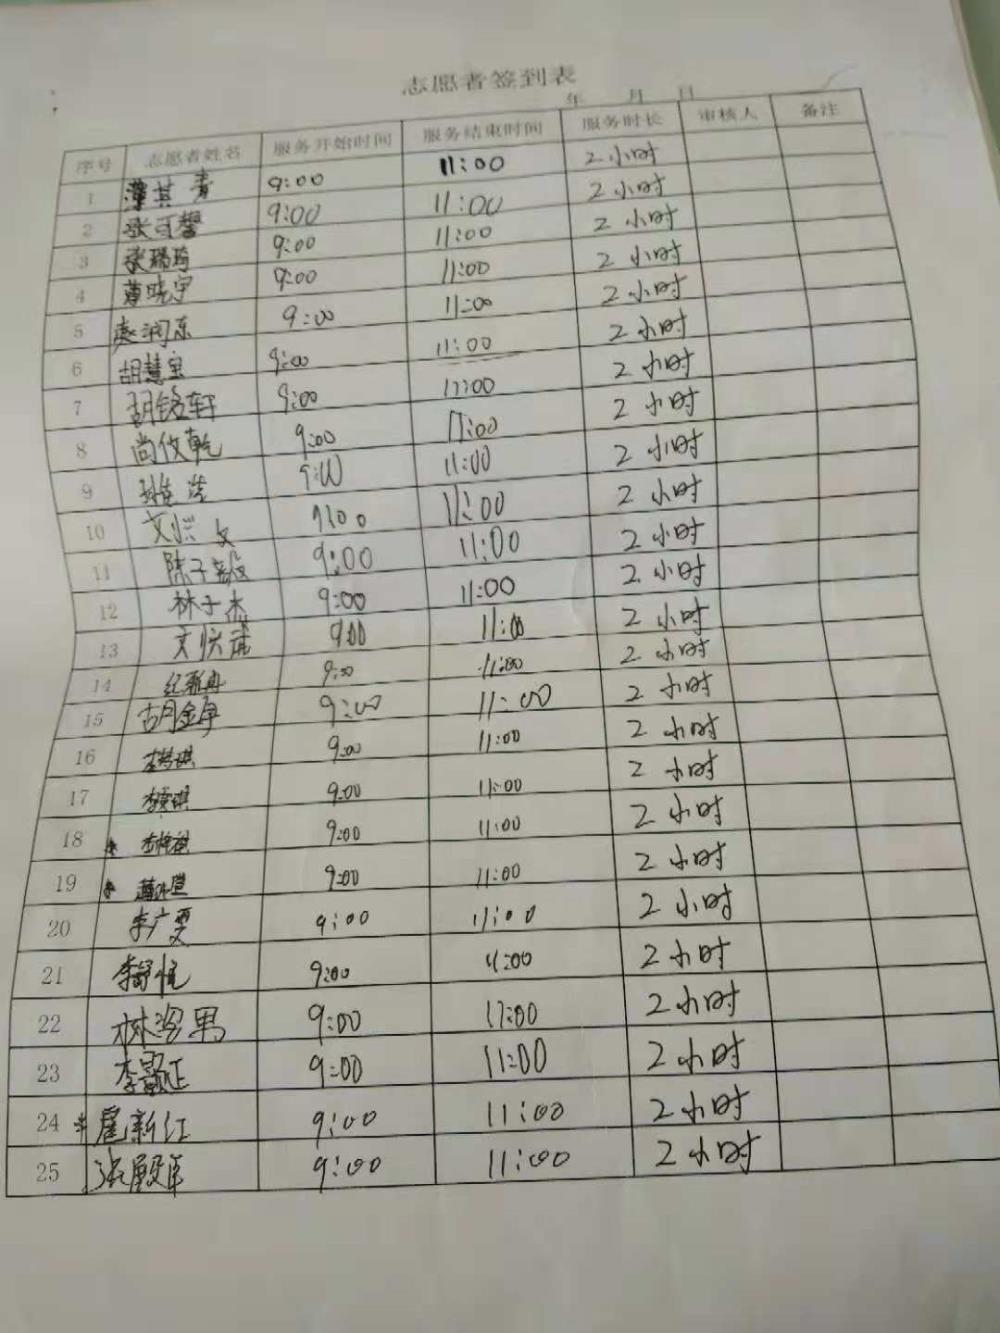 志愿者签到表
年 月 日
序号 志愿者姓名 服务开始时间 服务结束时间 服务时长 审核人 备注
1 薄其青 9:00 11:00 2小时
2 张可馨 9:00 11:00 2小时
3 张瑞琦 9:00 11:00 2小时
4 薄晓宇 9:00 11:00 2小时
5 赵润东 9:00 11:00 2小时
6 胡慧宝 9:00 11:00 2小时
7 胡铭轩 9:00 11:00 2小时
8 尚攸乾 9:00 11:00 2小时
9 9:00 11:00 2小时
10 9:00 11:00 2小时
11 陈子毅 9:00 11:00 2小时
12 林子杰 9:00 11:00 2小时
13 9:00 11:00 2小时
14 9:00 11:00 2小时
15 9:00 11:00 2小时
16 9:00 11:00 2小时
17 9:00 11:00 2小时
18 9:00 11:00 2小时
19 9:00 11:00 2小时
20 李广雯 9:00 11:00 2小时
21 李舒恒 9:00 11:00 2小时
22 9:00 11:00 2小时
23 李颢正 9:00 11:00 2小时
24 扈新红 9:00 11:00 2小时
25 9:00 11:00 2小时